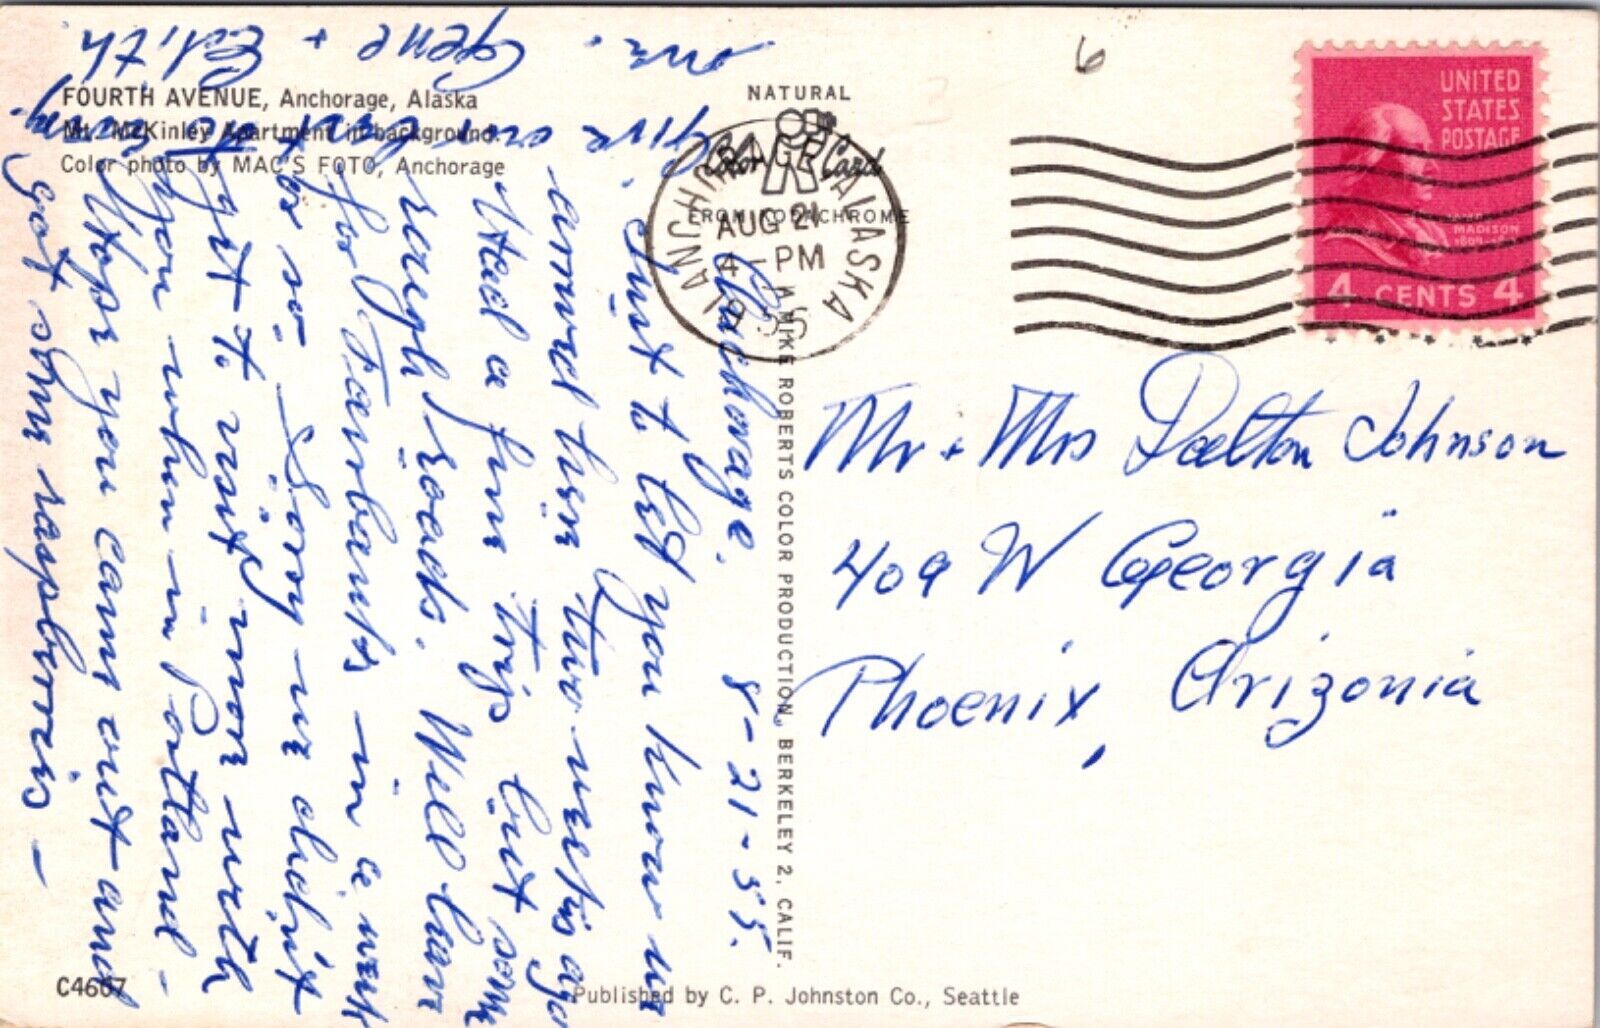 FOURTH AVENUE, Anchorage, Alaska
Mt. McKinley Apartment in background.
Color photo by MAC'S FOTO, Anchorage
NATURAL
Color Card
FROM KODACHROME
AUG 21
4 - PM
1955
ALASKA
UNITED
STATES
POSTAGE
MADISON
4 CENTS 4
6
Mr + Mrs Dalton Johnson
409 W Georgia
Phoenix, Arizonia
Anchorage. 8-21-55.
Just to let you know we
arrived here two weeks ago
Had a fine trip but some
rough roads. Will leave
for Fairbanks in a week
or so. Sorry we didn't
get to visit more with
you when in Portland -
Hope you came out and
got some raspberries -
give our best to
Gene + Edith
MIKE ROBERTS COLOR PRODUCTION, BERKELEY 2, CALIF.
C4667
Published by C. P. Johnston Co., Seattle